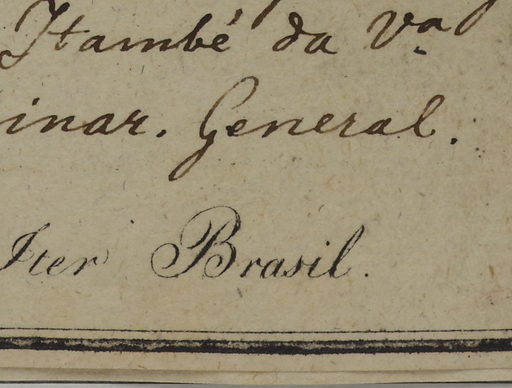 Itambé da Va
inar. General.
Iter Brasil.